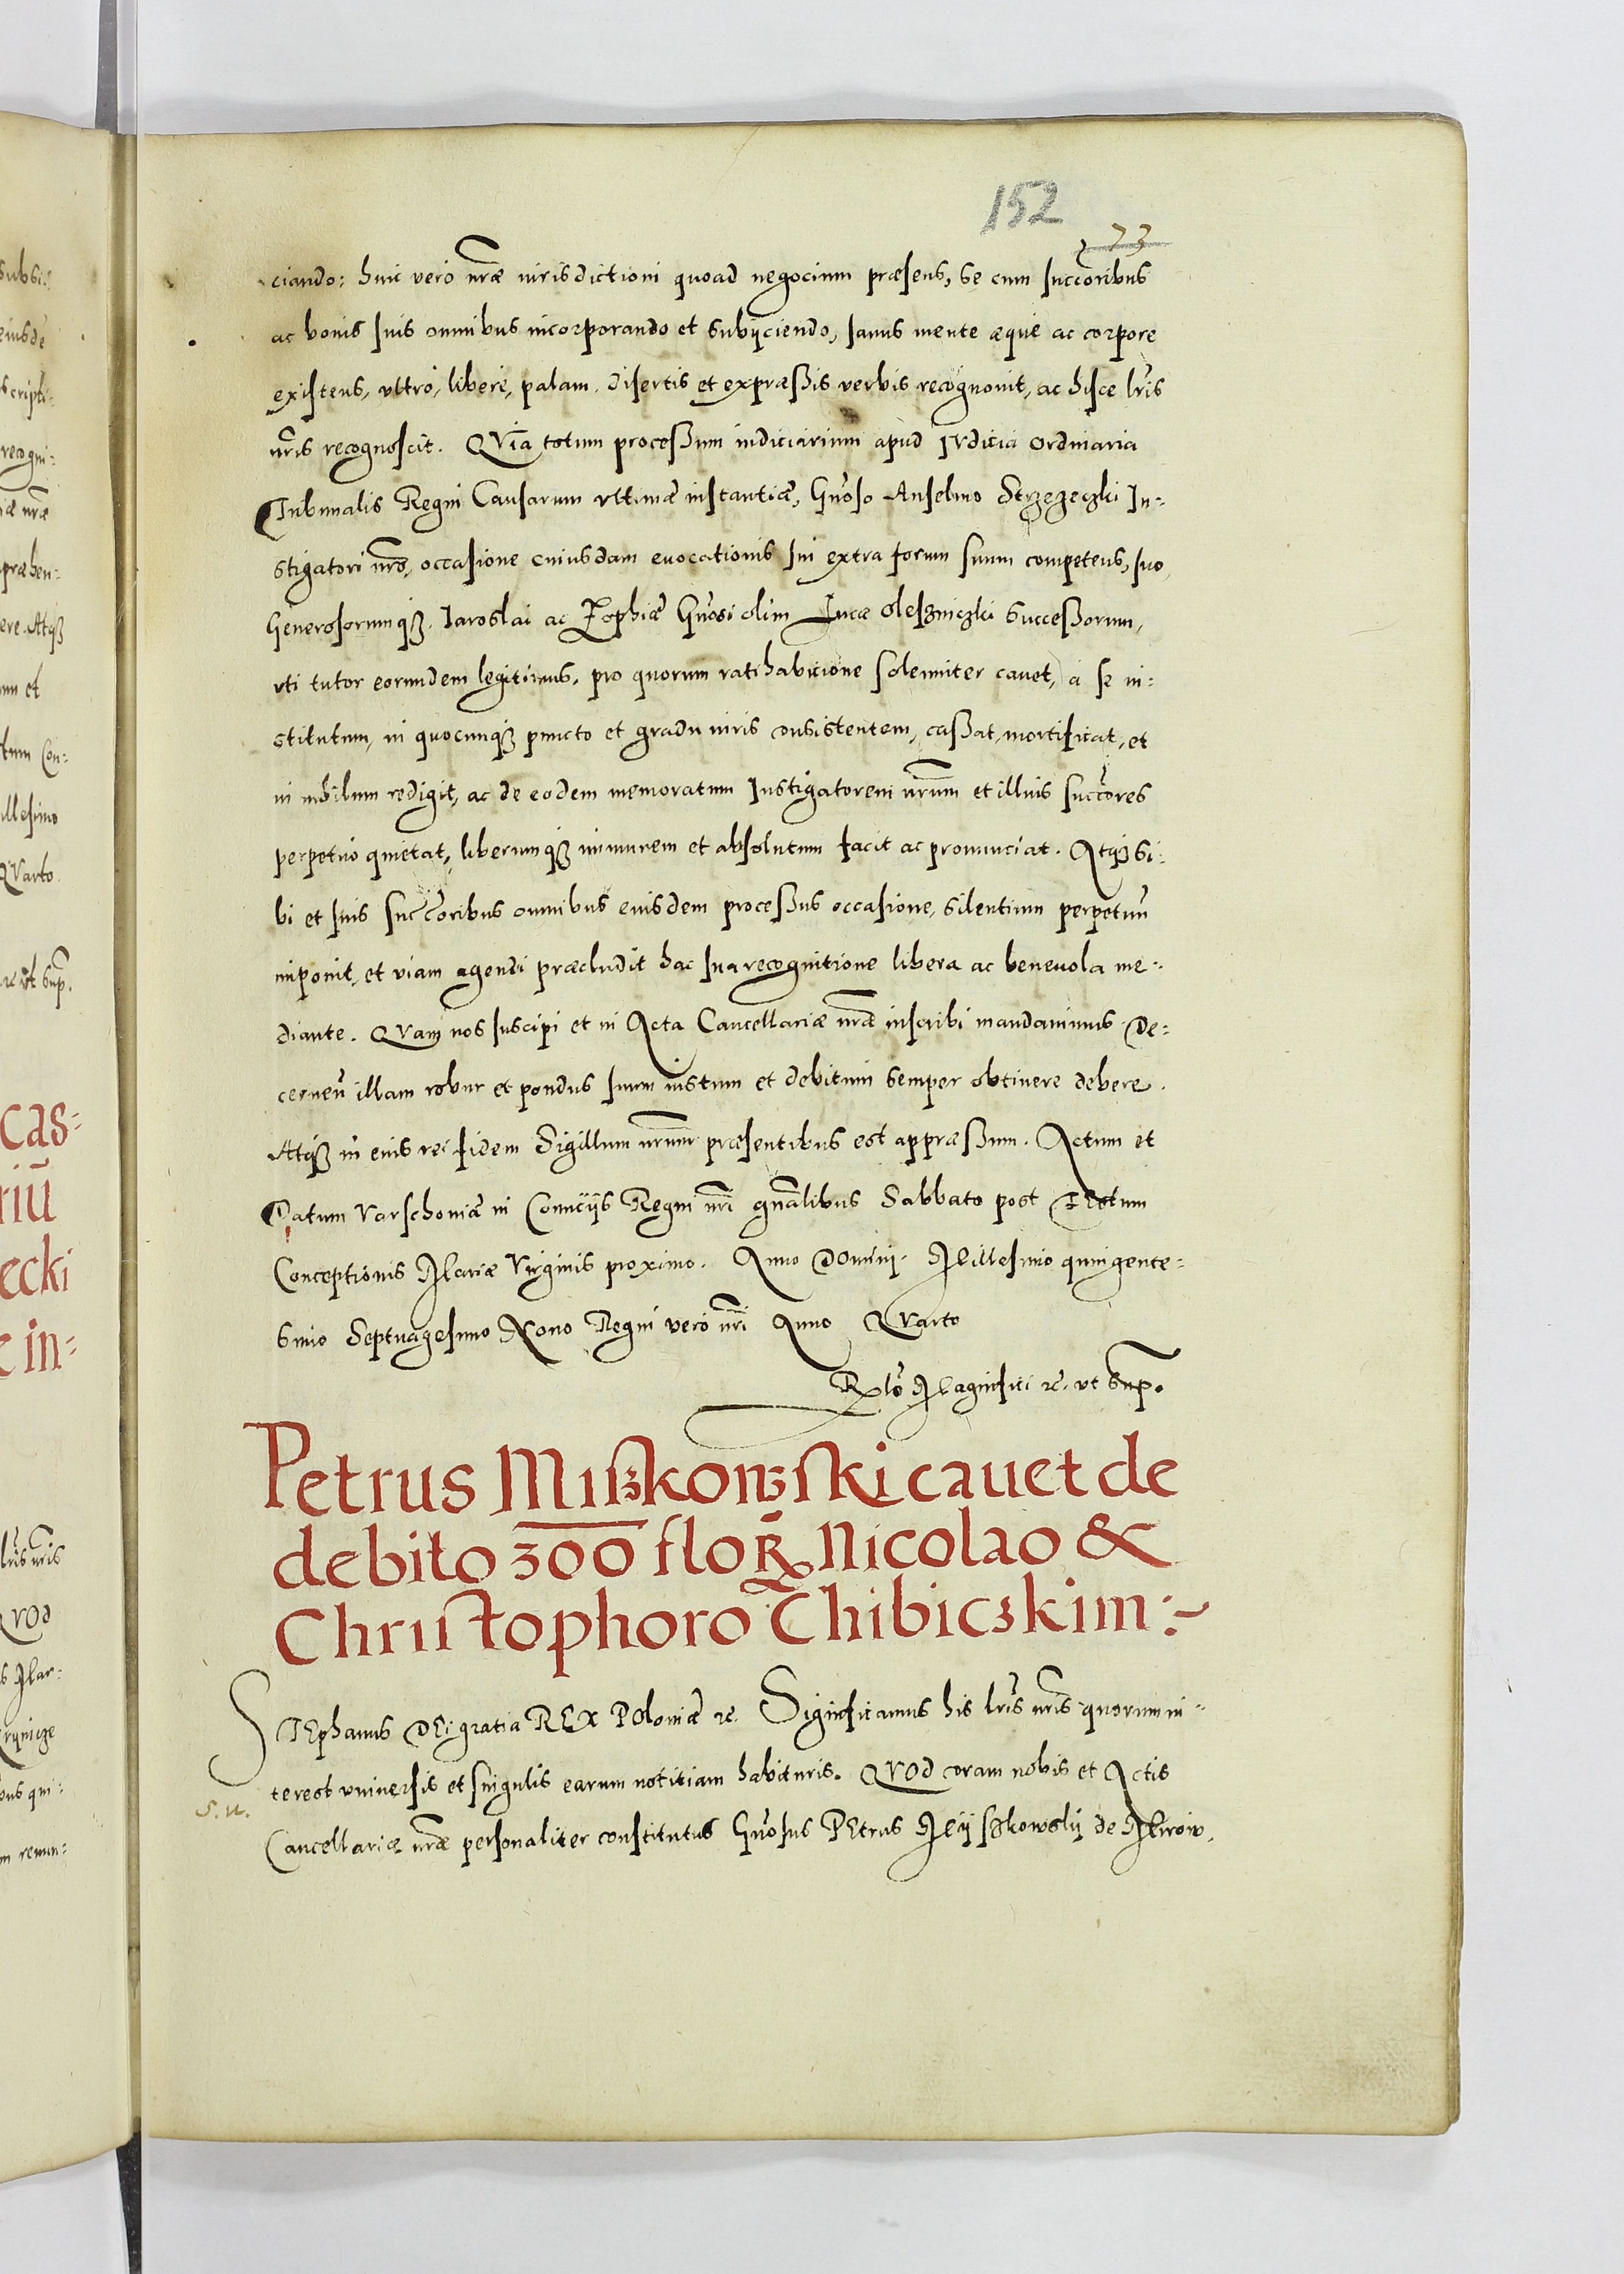 152
73
ciando: huic vero nr̃ae iurisdictioni quoad negocium præsens, se cum succ̃oribus
ac bonis suis omnibus incorporando et subijciendo, sanus mente æque ac corpore
existens, vltro, libere, palam, disertis et expræssis verbis recognouit, ac hisce lr̃is
nr̃is recognoscit. QVia totum processum iudiciarium apud IVdicia Ordinaria
Tribunalis Regni Causarum vltimæ instantiæ, Gñoso Anselmo Strzezeczki In-
stigatori nr̃o, occasione cuiusdam euocationis sui extra forum suum competens, suo,
Generosorumqȝ Iaroslai ac Zophiæ Gñosi olim Lucæ Oleszniczki successorum,
vti tutor eorundem legitimus, pro quorum ratihabitione solenniter cauet, à se in-
stitutum, in quocunqȝ puncto et gradu iuris consistentem, cassat, mortificat, et
in nihilum redigit, ac de eodem memoratum Instigatorem nr̃um et illius succ̃ores
perpetuo quietat, liberumqȝ immunem et absolutum facit ac pronunciat. Atqȝ si-
bi et suis succ̃oribus omnibus eiusdem processus occasione, silentium perpetuũ
imponit, et viam agendi præcludit hac sua recognitione libera ac beneuola me-
diante. QVam nos suscipi et in Acta Cancellariæ nr̃æ inscribi mandauimus De-
cerneñ illam robur et pondus suum iustum et debitum semper obtinere debere.
Atqȝ in eius rei fidem Sigillum nr̃um præsentibus est appræssum. Actum et
Datum Varschoniæ in Comicijs Regni nr̃i gñalibus Sabbato post FEstum
Conceptionis Mariæ Virginis proximo. Anno Domini Millesimo quingente-
simo Septuagesimo Nono Regni vero nr̃i Anno QVarto
Rlõ Magnifici &c. vt Sup.
Petrus Mißkowski cauet de
debito 300 floR̃ Nicolao &
Christophoro Chibiczkim:~
STEphanus DEi gratia REX POloniæ &c. Significamus his lr̃is nr̃is quorum in-
terest vniuersis et singulis earum notitiam habituris. QVOd coram nobis et Actis
s. u.
Cancellariæ nr̃æ personaliter constitutus Gñosus PEtrus Myszkowskÿ de Mirow,